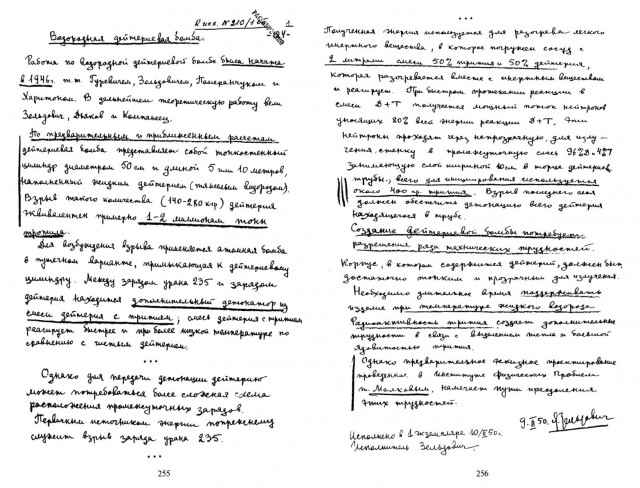 К исх. № 210/1об
РАССЕКРЕЧЕНО
1
Водородная дейтериевая бомба.
Работа по водородной дейтериевой бомбе была начата
в 1946г. т.т. Гуревичем, Зельдовичем, Померанчуком и
Харитоном. В дальнейшем теоретическую работу вели
Зельдович, Дьяков и Компанеец.
По предварительным и приближенным расчетам
дейтериевая бомба представляет собой тонкостенный
цилиндр диаметром 50 см и длиной 5 или 10 метров,
наполненный жидким дейтерием (тяжелым водородом).
Взрыв такого количества (140-280 кгр) дейтерия
эквивалентен примерно 1-2 миллионам тонн
тротила.
Для возбуждения взрыва применяется атомная бомба
в пушечном варианте, примыкающая к дейтериевому
цилиндру. Между зарядом урана 235 и зарядом
дейтерия находится дополнительный детонатор из
смеси дейтерия с тритием; смесь дейтерия с тритием
реагирует быстрее и при более низкой температуре по
сравнению с чистым дейтерием.
* * *
Однако для передачи детонации дейтерию
может потребоваться более сложная схема
расположения промежуточных зарядов.
Первичным источником энергии попрежнему
служит взрыв заряда урана 235.
* * *
255
Полученная энергия используется для разогрева легкого
инертного вещества, в которое погружен сосуд с
2 литрами смеси 50% трития и 50% дейтерия,
которая разогревается вместе с инертным веществом
и реагирует. При быстром протекании реакции в
смеси D+T получается мощный поток нейтронов
уносящих 80% всей энергии реакции D+T. Эти
нейтроны проходят через непрозрачную, для излу-
чения, стенку в промежуточную смесь 96%D+4%T
занимающую слой шириной 10см в торце дейтериев.
трубы, всего для инициирования используется
около 400 гр. трития. Взрыв последнего слоя
должен обеспечить детонацию всего дейтерия
находящегося в трубе.
Создание дейтериевой бомбы потребует
разрешения ряда технических трудностей.
Корпус, в котором содержится дейтерий, должен быть
достаточно тонким и прозрачным для излучения.
Необходимо длительное время поддерживать
изделие при температуре жидкого водорода.
Радиоактивность трития создает дополнительные
трудности в связи с выделением тепла и большой
ядовитостью трития.
Однако предварительное эскизное проектирование
проведенное в институте физических проблем
т. Малковым, намечает пути преодоления
этих трудностей.
9.II 50. Я Зельдович
Исполнено в 1 экземпляре 10/II 50г.
Исполнитель Зельдович.
* * *
256